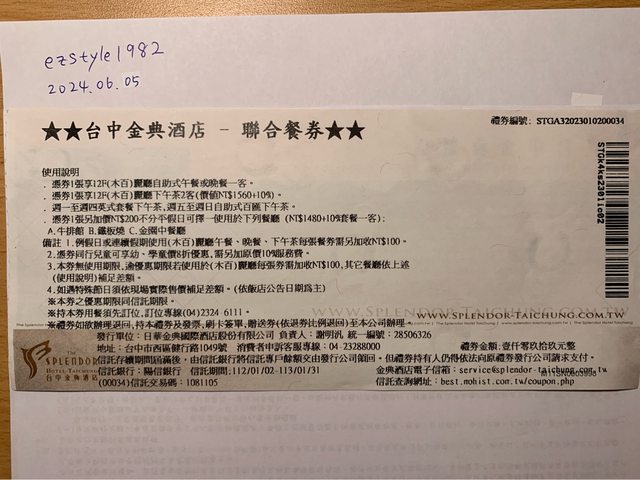 ezstyle1982
2024.06.05
★★台中金典酒店 - 聯合餐券★★
禮券編號: STGA32023010200034
STGk4ks23011c02
使用說明
.憑券1張享12F(木百)麗廳自助式午餐或晚餐一客。
.憑券1張享12F(木百)麗廳下午茶2客(價值NT$1560+10%)。
.週一至週四英式套餐下午茶,週五至週日自助式百匯下午茶。
.憑券1張另加價NT$200不分平假日可擇一使用於下列餐廳 (NT$1480+10%套餐一客);
A.牛排館 B.鐵板燒 C.金園中餐廳
備註 1.例假日或連續假期使用(木百)麗廳午餐、晚餐、下午茶每張餐券需另加收NT$100。
2.憑券同行兒童可享幼、學童價8折優惠,需另加原價10%服務費。
3.本券無使用期限,逾優惠期限若使用於(木百)麗廳每張券需加收NT$100,其它餐廳依上述
(使用說明)補足差額。
4.如遇特殊節日須依現場實際售價補足差額。(依飯店公告日期為主)
※本券之優惠期限同信託期限。
※持本券用餐須先訂位,訂位專線(04)2324 6111。
WWW.SPLENDOR-TAICHUNG.COM.TW
※禮券如欲辦理退回,持本禮券及發票,刷卡簽單,贈送券(依退券比例退回)至本公司辦理。
The SPLENDOR
HOTEL·TAICHUNG
台中金典酒店
發行單位:日華金典國際酒店股份有限公司 負責人:謝明汎 統一編號:28506326
禮券金額:壹仟零拾零元整
地址:台中市西區健行路1049號 消費者申訴客服專線:04-23288000
信託存續期間屆滿後,由信託銀行將信託專戶餘額交由發行公司領回。但禮券持有人仍得依法向原禮券發行公司請求支付。
信託銀行:陽信銀行 信託期間:112/01/02-113/01/31
金典酒店電子信箱:service@splendor-taichung.com.tw
(00034)信託交易碼:1081105
信託查詢網址:best.mohist.com.tw/coupon.php